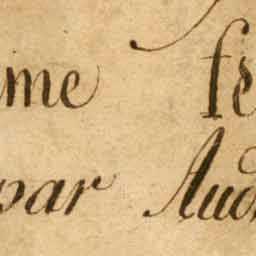 me fe
par Aud